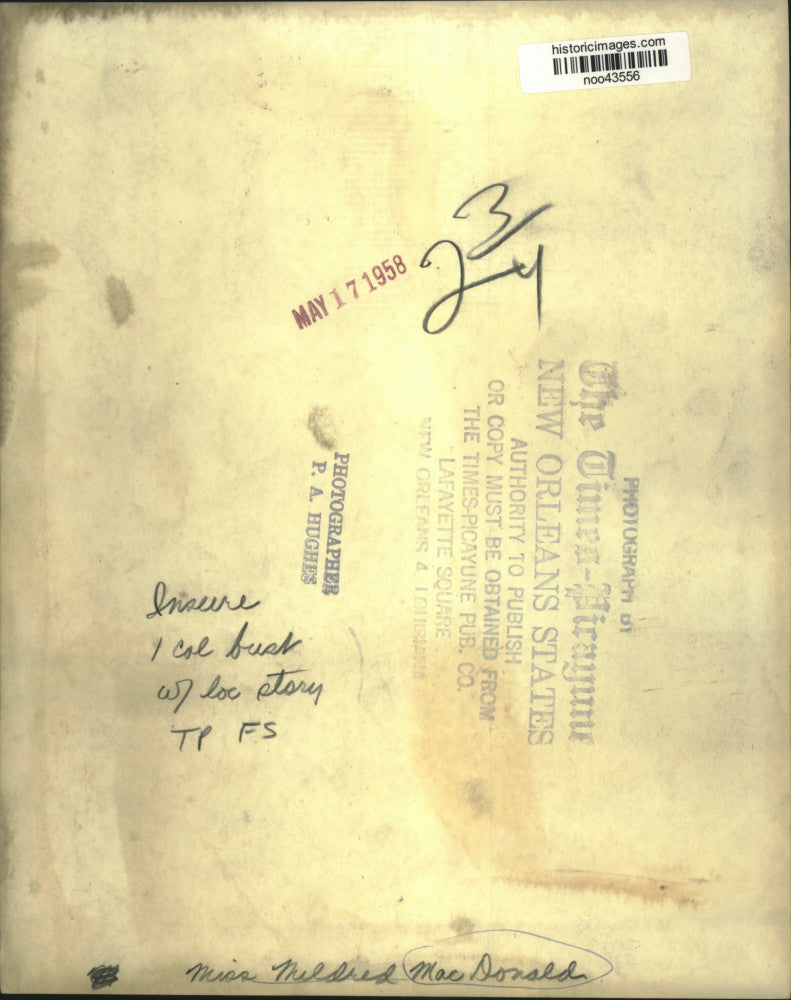 historicimages.com
noo43556
2 3/4
MAY 17 1958
PHOTOGRAPH BY
The Times-Picayune
NEW ORLEANS STATES
AUTHORITY TO PUBLISH
OR COPY MUST BE OBTAINED FROM
THE TIMES-PICAYUNE PUB. CO.
LAFAYETTE SQUARE
NEW ORLEANS 4, LOUISIANA
PHOTOGRAPHER
P. A. HUGHES
Insure
1 col bust
w/ loc story
TP FS
Miss Mildred MacDonald